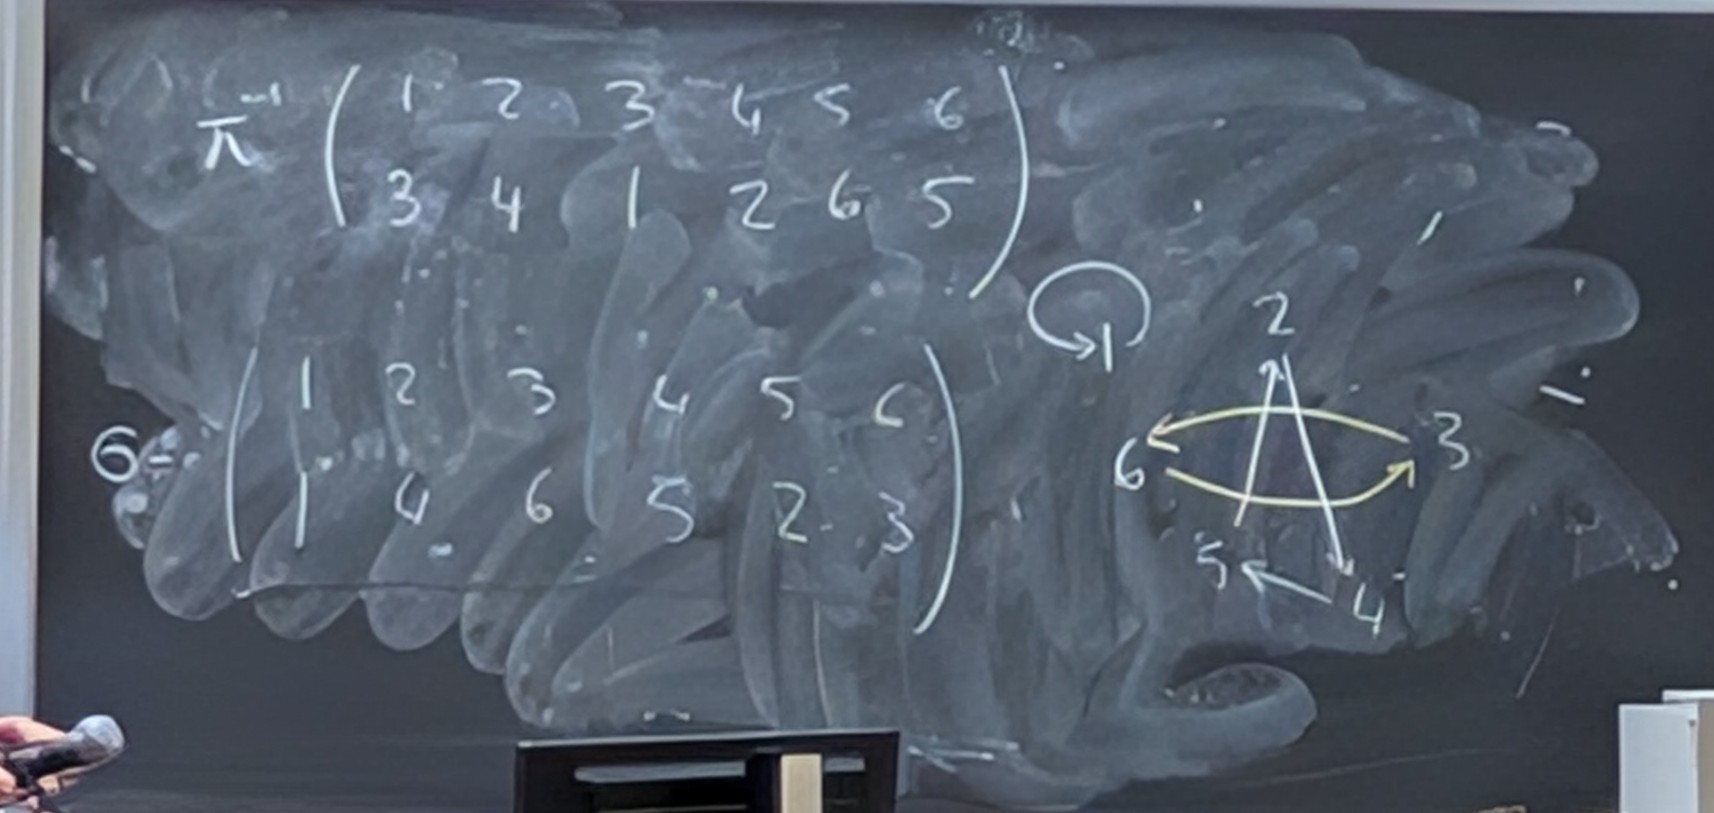 π⁻¹ ( 1 2 3 4 5 6 )
( 3 4 1 2 6 5 )
σ = ( 1 2 3 4 5 6 )
( 1 4 6 5 2 3 )
1
2
6 3
5 4